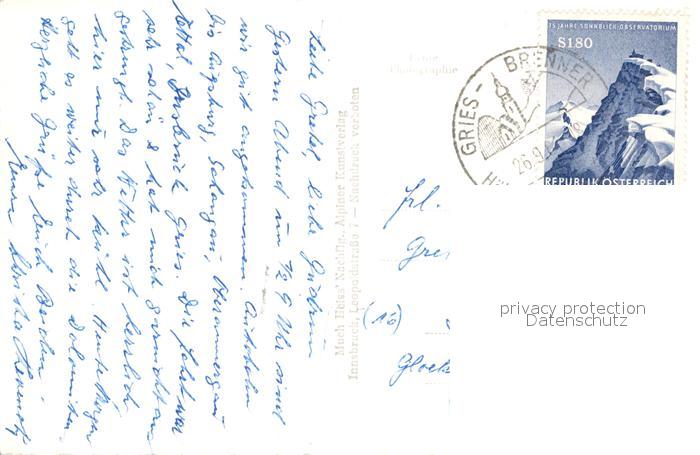 Liebe Gretel, liebe Gudrun
Gestern Abend um ½ 9 Uhr sind
wir gut angekommen. Autobahn
bis Augsburg, Schongau, Oberammergau
Ettal, Innsbruck Gries. Die Fahrt war
sehr schön & hat mich garnicht an-
gestrengt. Das Wetter ist herrlich,
hier nur sehr kühl. Heute Morgen
geht es weiter durch die Dolomiten.
Herzliche Grüße Euch Beiden.
Much Heiss' Nachflg., Alpiner Kunstverlag
Innsbruck, Leopoldstraße 7 — Nachdruck verboten
Echte
Photographie
75 JAHRE SONNBLICK-OBSERVATORIUM
S1·80
REPUBLIK ÖSTERREICH
GRIES - BRENNER
26.9
Frl.
Gre
(16)
Glock
privacy protection
Datenschutz